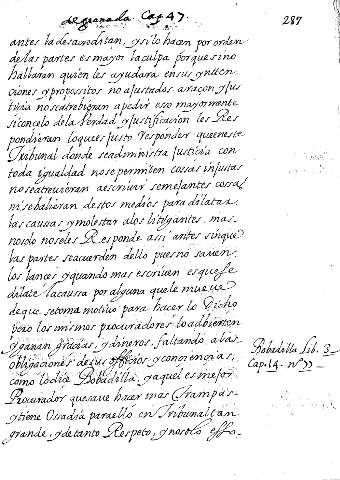 de granada. Cap 47.
287
antes la desacreditan, y silo hacen por orden
de las partes es mayor la culpa porque sino
hallaran quien les ayudara ensus ynten
ciones y propositos no ajustados a raçon y jus
ticia no se atrebieran a pedir eso mayormente
si con celo de la Verdad y justificacion les Res
pondieran lo que es justo responder que en este
Tribunal donde se administra justicia con
toda igualdad no se permiten cossas injustas
no se atreuieran a escriuir semejantes cosas
ni se balieran de estos medios para dilatar
las causas y molestar a los litigantes. mas
no solo no seles Responde assi antes sin que
las partes se acuerden dello pues no sauen
los lances y quando mas escriuen es que se
dilate la caussa por alguna que le mueue
de que se toma motivo para hacer lo Dicho
pero los mismos procuradores lo adbierten
y ganan gracias, y dineros, faltando a las
obligaciones de sus officios y conciencias,
como lo dice Bobadilla, y aquel es mejor
Procurador que saue hacer mas Trampas
y tiene Ossadia para ello en Tribunal tan
grande, y de tanto Respeto, y no solo esso
Bobadilla Lib. 3
Cap. 14. nº 77